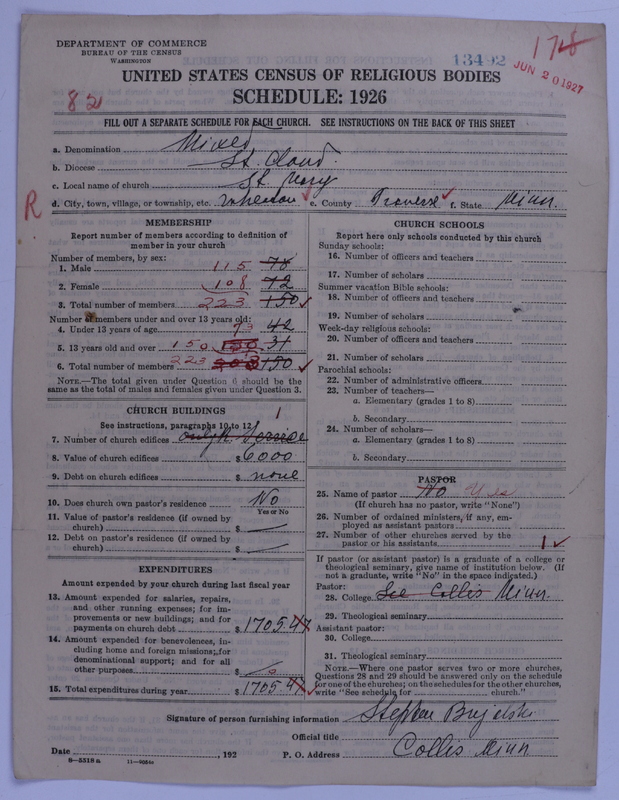 DEPARTMENT OF COMMERCE
BUREAU OF THE CENSUS
WASHINGTON
13492
178
JUN 20 1927
UNITED STATES CENSUS OF RELIGIOUS BODIES
82
SCHEDULE: 1926
FILL OUT A SEPARATE SCHEDULE FOR EACH CHURCH. SEE INSTRUCTIONS ON THE BACK OF THIS SHEET
a. Denomination Mixed
b. Diocese St. Cloud.
c. Local name of church St Mary
R
d. City, town, village, or township, etc. Wheaton e. County Traverse f. State Minn.
MEMBERSHIP
Report number of members according to definition of
member in your church
Number of members, by sex:
1. Male 115 78
2. Female 108 72
3. Total number of members 223 150
Number of members under and over 13 years old:
4. Under 13 years of age 73 42
5. 13 years old and over 150 31
6. Total number of members 223 203 150
NOTE.—The total given under Question 6 should be the
same as the total of males and females given under Question 3.
CHURCH BUILDINGS
See instructions, paragraphs 10 to 12
1
7. Number of church edifices
8. Value of church edifices $ 6000
9. Debt on church edifices $ none
10. Does church own pastor's residence No
Yes or No
11. Value of pastor's residence (if owned by
church) $
12. Debt on pastor's residence (if owned by
church) $
EXPENDITURES
Amount expended by your church during last fiscal year
13. Amount expended for salaries, repairs,
and other running expenses; for im-
provements or new buildings; and for
payments on church debt $ 1705.47
14. Amount expended for benevolences, in-
cluding home and foreign missions; for
denominational support; and for all
other purposes $
15. Total expenditures during year $ 1705.47
CHURCH SCHOOLS
Report here only schools conducted by this church
Sunday schools:
16. Number of officers and teachers
17. Number of scholars
Summer vacation Bible schools:
18. Number of officers and teachers
19. Number of scholars
Week-day religious schools:
20. Number of officers and teachers
21. Number of scholars
Parochial schools:
22. Number of administrative officers
23. Number of teachers—
a. Elementary (grades 1 to 8)
b. Secondary
24. Number of scholars—
a. Elementary (grades 1 to 8)
b. Secondary
PASTOR
25. Name of pastor No Yes
(If church has no pastor, write "None")
26. Number of ordained ministers, if any, em-
ployed as assistant pastors
27. Number of other churches served by the
pastor or his assistants 1
If pastor (or assistant pastor) is a graduate of a college or
theological seminary, give name of institution below. (If
not a graduate, write "No" in the space indicated.)
Pastor:
28. College See Collis Minn.
29. Theological seminary
Assistant pastor:
30. College
31. Theological seminary
NOTE.—Where one pastor serves two or more churches,
Questions 28 and 29 should be answered only on the schedule
for one of the churches; on the schedules for the other churches,
write "See schedule for church."
Signature of person furnishing information Stephen
Official title
Date , 192
P. O. Address Collis Minn
8—5518a